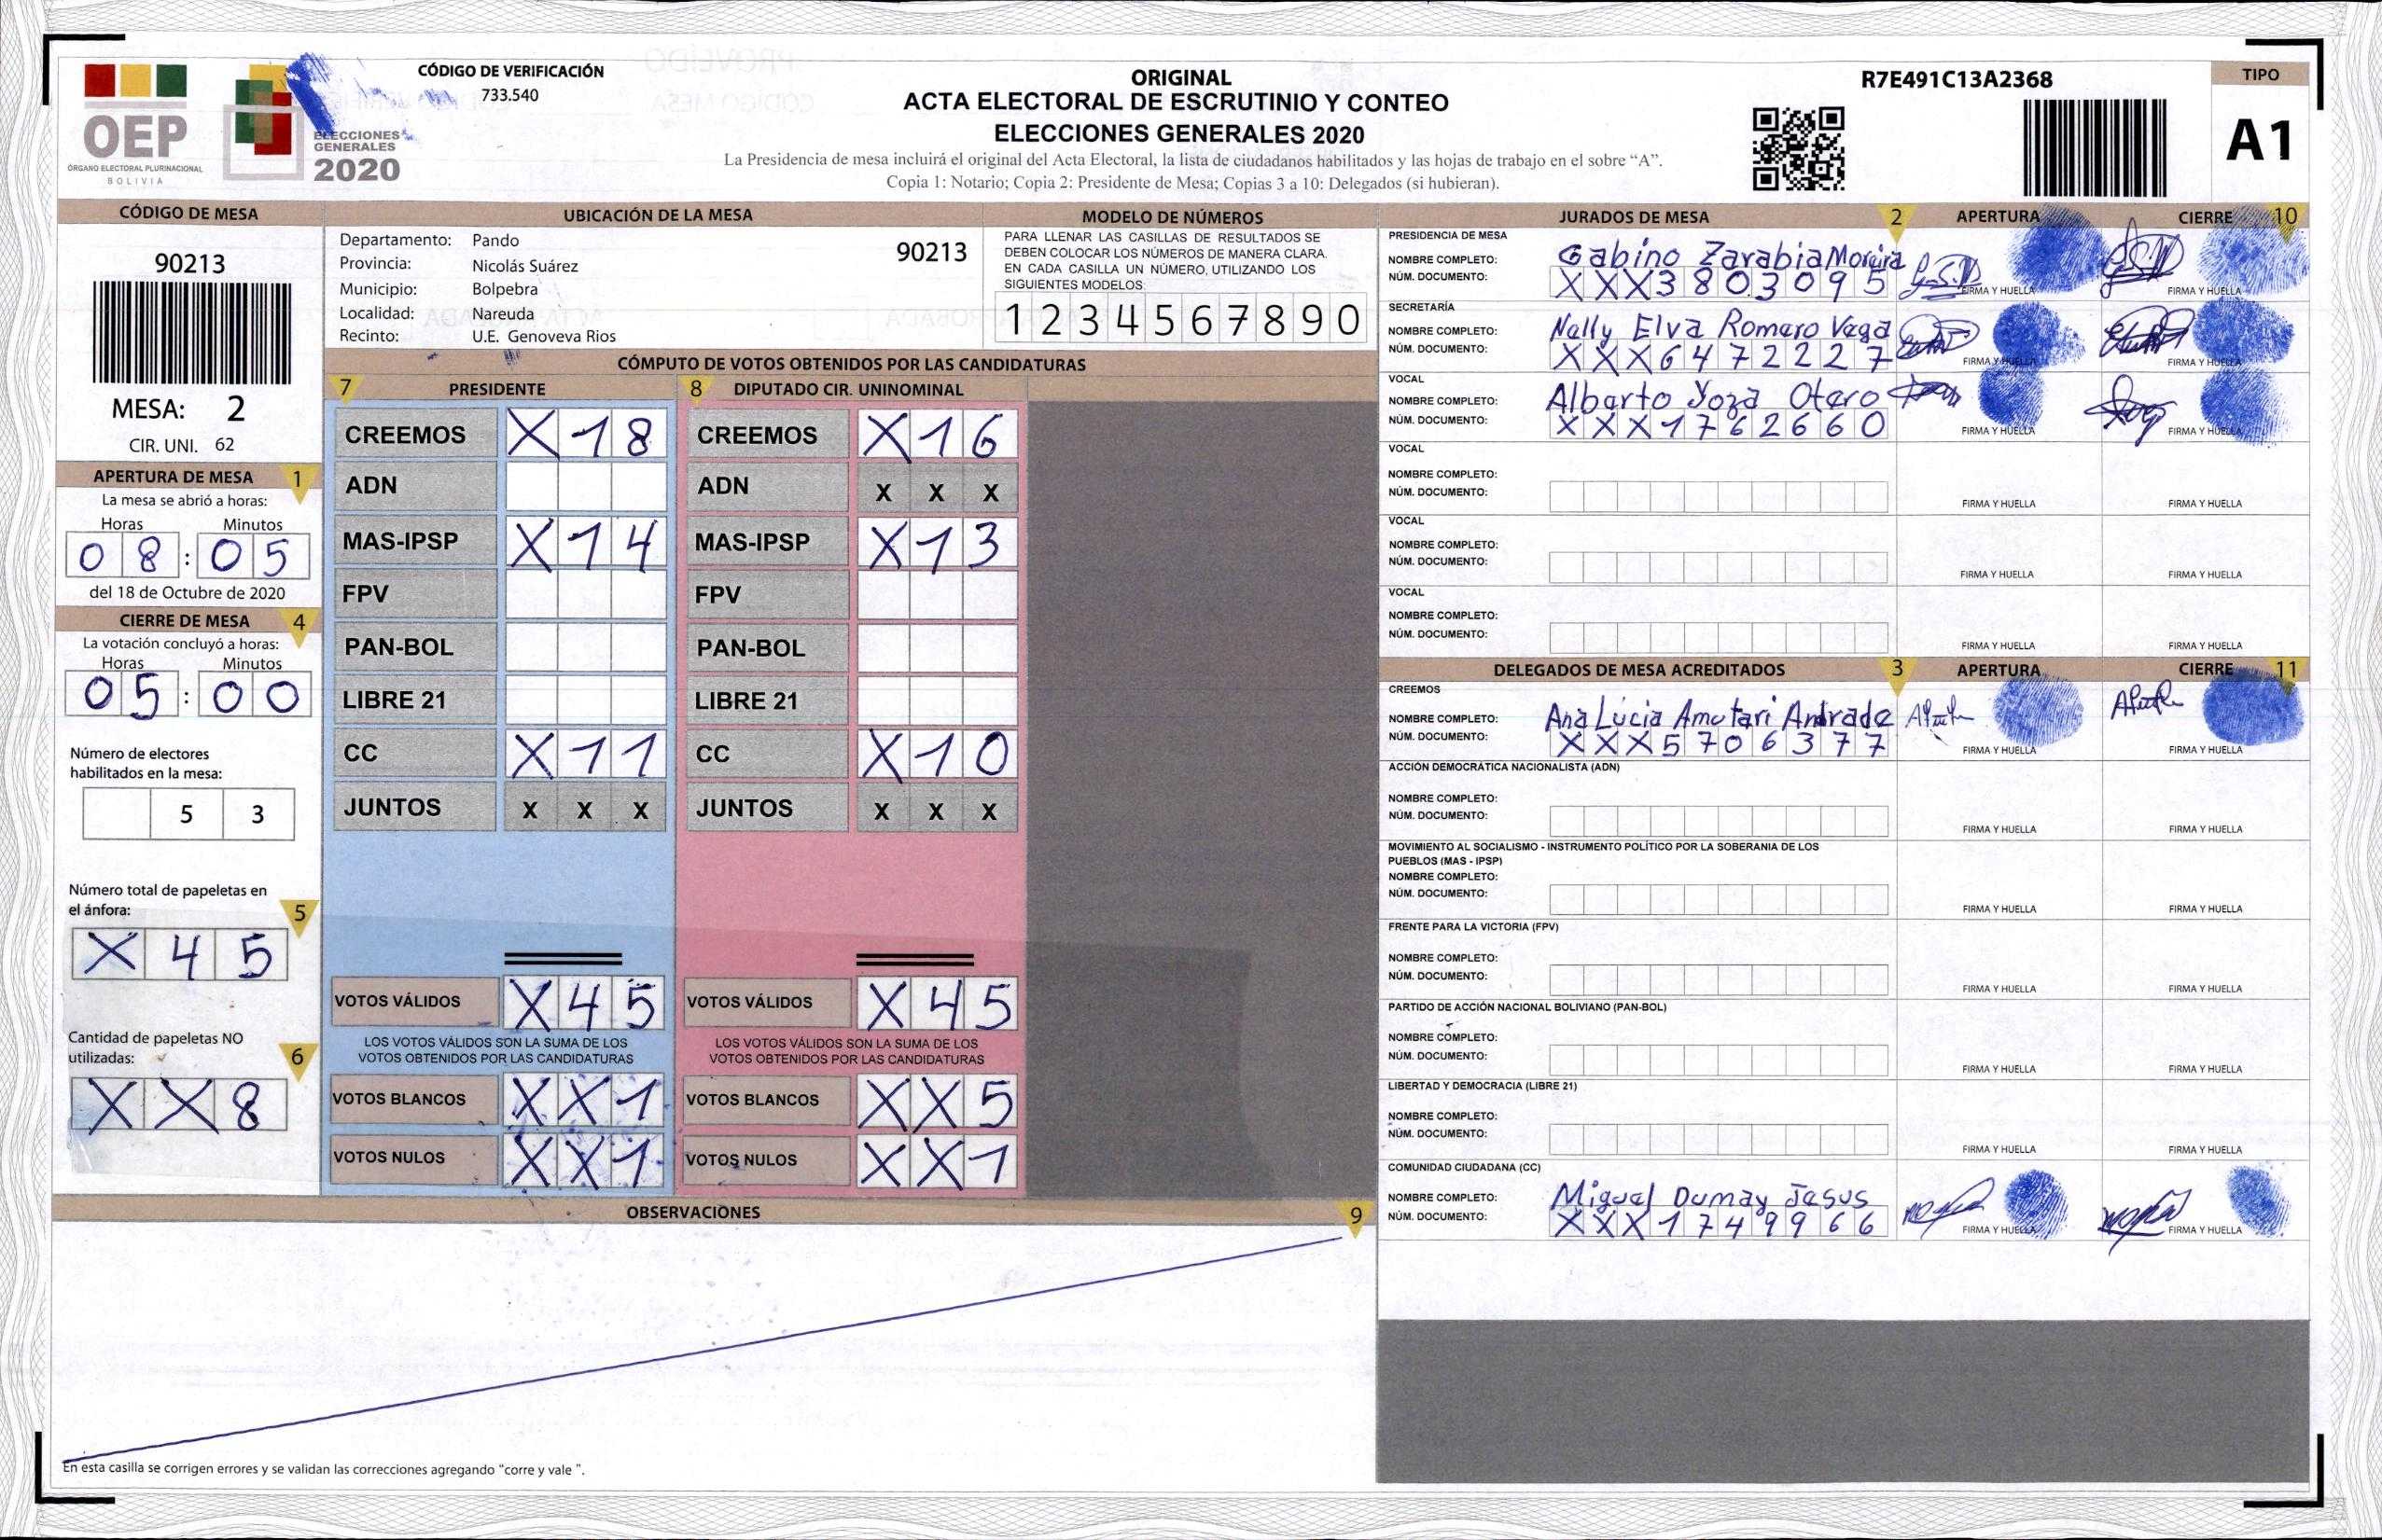 OEP
ÓRGANO ELECTORAL PLURINACIONAL
BOLIVIA
ELECCIONES
GENERALES
2020
CÓDIGO DE VERIFICACIÓN
733.540
ORIGINAL
ACTA ELECTORAL DE ESCRUTINIO Y CONTEO
ELECCIONES GENERALES 2020
La Presidencia de mesa incluirá el original del Acta Electoral, la lista de ciudadanos habilitados y las hojas de trabajo en el sobre “A”.
Copia 1: Notario; Copia 2: Presidente de Mesa; Copias 3 a 10: Delegados (si hubieran).
R7E491C13A2368
TIPO
A1
CÓDIGO DE MESA
90213
MESA: 2
CIR. UNI. 62
APERTURA DE MESA 1
La mesa se abrió a horas:
Horas Minutos
08:05
del 18 de Octubre de 2020
CIERRE DE MESA 4
La votación concluyó a horas:
Horas Minutos
05:00
Número de electores
habilitados en la mesa:
5 3
Número total de papeletas en
el ánfora: 5
X 4 5
Cantidad de papeletas NO
utilizadas: 6
X X 8
UBICACIÓN DE LA MESA
Departamento: Pando
90213
Provincia: Nicolás Suárez
Municipio: Bolpebra
Localidad: Nareuda
Recinto: U.E. Genoveva Rios
MODELO DE NÚMEROS
PARA LLENAR LAS CASILLAS DE RESULTADOS SE
DEBEN COLOCAR LOS NÚMEROS DE MANERA CLARA.
EN CADA CASILLA UN NÚMERO, UTILIZANDO LOS
SIGUIENTES MODELOS:
1 2 3 4 5 6 7 8 9 0
CÓMPUTO DE VOTOS OBTENIDOS POR LAS CANDIDATURAS
7 PRESIDENTE 8 DIPUTADO CIR. UNINOMINAL
CREEMOS X 1 8 CREEMOS X 1 6
ADN ADN X X X
MAS-IPSP X 1 4 MAS-IPSP X 1 3
FPV FPV
PAN-BOL PAN-BOL
LIBRE 21 LIBRE 21
CC X 1 1 CC X 1 0
JUNTOS X X X JUNTOS X X X
VOTOS VÁLIDOS X 4 5 VOTOS VÁLIDOS X 4 5
LOS VOTOS VÁLIDOS SON LA SUMA DE LOS LOS VOTOS VÁLIDOS SON LA SUMA DE LOS
VOTOS OBTENIDOS POR LAS CANDIDATURAS VOTOS OBTENIDOS POR LAS CANDIDATURAS
VOTOS BLANCOS X X 1 VOTOS BLANCOS X X 5
VOTOS NULOS X X 1 VOTOS NULOS X X 1
OBSERVACIONES 9
En esta casilla se corrigen errores y se validan las correcciones agregando "corre y vale ".
JURADOS DE MESA 2 APERTURA CIERRE 10
PRESIDENCIA DE MESA
NOMBRE COMPLETO: Gabino Zarabia Moreira
NÚM. DOCUMENTO: XXX3803095
FIRMA Y HUELLA FIRMA Y HUELLA
SECRETARÍA
NOMBRE COMPLETO: Nelly Elva Romero Vega
NÚM. DOCUMENTO: XXX6472227
FIRMA Y HUELLA FIRMA Y HUELLA
VOCAL
NOMBRE COMPLETO: Alberto Yoza Otero
NÚM. DOCUMENTO: XXX1762660
FIRMA Y HUELLA FIRMA Y HUELLA
VOCAL
NOMBRE COMPLETO:
NÚM. DOCUMENTO:
FIRMA Y HUELLA FIRMA Y HUELLA
VOCAL
NOMBRE COMPLETO:
NÚM. DOCUMENTO:
FIRMA Y HUELLA FIRMA Y HUELLA
VOCAL
NOMBRE COMPLETO:
NÚM. DOCUMENTO:
FIRMA Y HUELLA FIRMA Y HUELLA
DELEGADOS DE MESA ACREDITADOS 3 APERTURA CIERRE 11
CREEMOS
NOMBRE COMPLETO: Ana Lucia Amutari Andrade
NÚM. DOCUMENTO: XXX5706377
FIRMA Y HUELLA FIRMA Y HUELLA
ACCIÓN DEMOCRÁTICA NACIONALISTA (ADN)
NOMBRE COMPLETO:
NÚM. DOCUMENTO:
FIRMA Y HUELLA FIRMA Y HUELLA
MOVIMIENTO AL SOCIALISMO - INSTRUMENTO POLÍTICO POR LA SOBERANIA DE LOS
PUEBLOS (MAS - IPSP)
NOMBRE COMPLETO:
NÚM. DOCUMENTO:
FIRMA Y HUELLA FIRMA Y HUELLA
FRENTE PARA LA VICTORIA (FPV)
NOMBRE COMPLETO:
NÚM. DOCUMENTO:
FIRMA Y HUELLA FIRMA Y HUELLA
PARTIDO DE ACCIÓN NACIONAL BOLIVIANO (PAN-BOL)
NOMBRE COMPLETO:
NÚM. DOCUMENTO:
FIRMA Y HUELLA FIRMA Y HUELLA
LIBERTAD Y DEMOCRACIA (LIBRE 21)
NOMBRE COMPLETO:
NÚM. DOCUMENTO:
FIRMA Y HUELLA FIRMA Y HUELLA
COMUNIDAD CIUDADANA (CC)
NOMBRE COMPLETO: Miguel Dumay Jesus
NÚM. DOCUMENTO: XXX1749966
FIRMA Y HUELLA FIRMA Y HUELLA